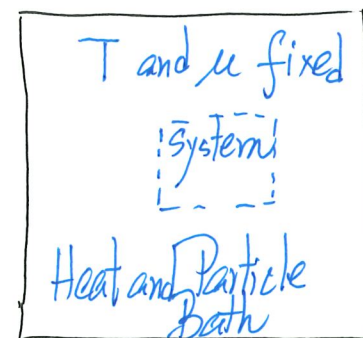 T and μ fixed
System
Heat and Particle
Bath